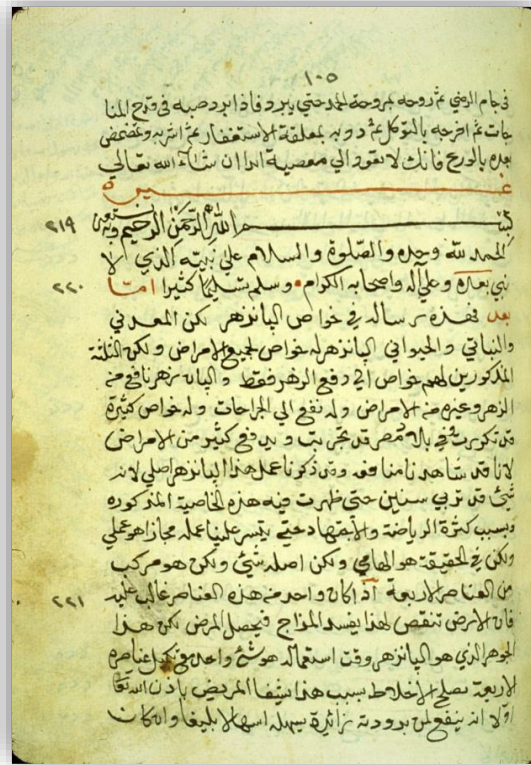 ١٠٥
في جام الرضي ثم روحه بمروحة الحمد حتي يبرد فاذا برد صبه في قدح المنا
جات ثم افرجه بالتوكل ثم دوبه بملعقة الاستغفار ثم اشربه وتمضمض
بعده بالورع فانك لا تعود الي معصية ابدا ان شاء الله تعالي
٢١٩ بسم الله الرحمن الرحيم وبه نستعين
الحمد لله وحده والصلوة والسلام علي نبيه الذي لا
٢٢٠ نبي بعده وعلي آله واصحابه الكرام وسلم تسليما كثيرا اما
بعد فهذه رسالة في خواص البانزهر لكن المعدني
والنباتي والحيواني البانزهر له خواص لجميع الامراض ولكن الثلثة
المذكورين لهم خواص الي دفع الزهر فقط والبانزهر نافع من
الزهر وغيره من الامراض وله نفع الي الجراحات وله خواص كثيرة
قد تكررت في بلاد مصر قد تجربت و دفع كثير من الامراض
لانا قد شاهدنا منافعه وقد ذكرنا عمل هذا البانزهر اصلي لانه
شيئ قد تربي سنين حتي ظهرت فيه هذه الخاصية المذكوره
وبسبب كثرة الرياضة والاجتهاد حتي يتسر علينا عمله مجازا هو عملي
ولكن في الحقيقة هو الهامي ولكن اصله شيئ ولكن هو مركب
٢٢١ من العناصر الاربعة اذا كان واحد من هذه العناصر غالب عليه
فان الارض تنقص لهذا يفسد المزاج فيحصل المرض لكن هذا
الجوهر الذي هو البانزهر وقت استعماله هو شيئ واحد في عناصره
الاربعة يصلح الاخلاط بسبب هذا يشفا المريض باذن الله تعا
اولا انه ينفع لمن برودته زائدة يسهله اسهالا بليغا وان كانت